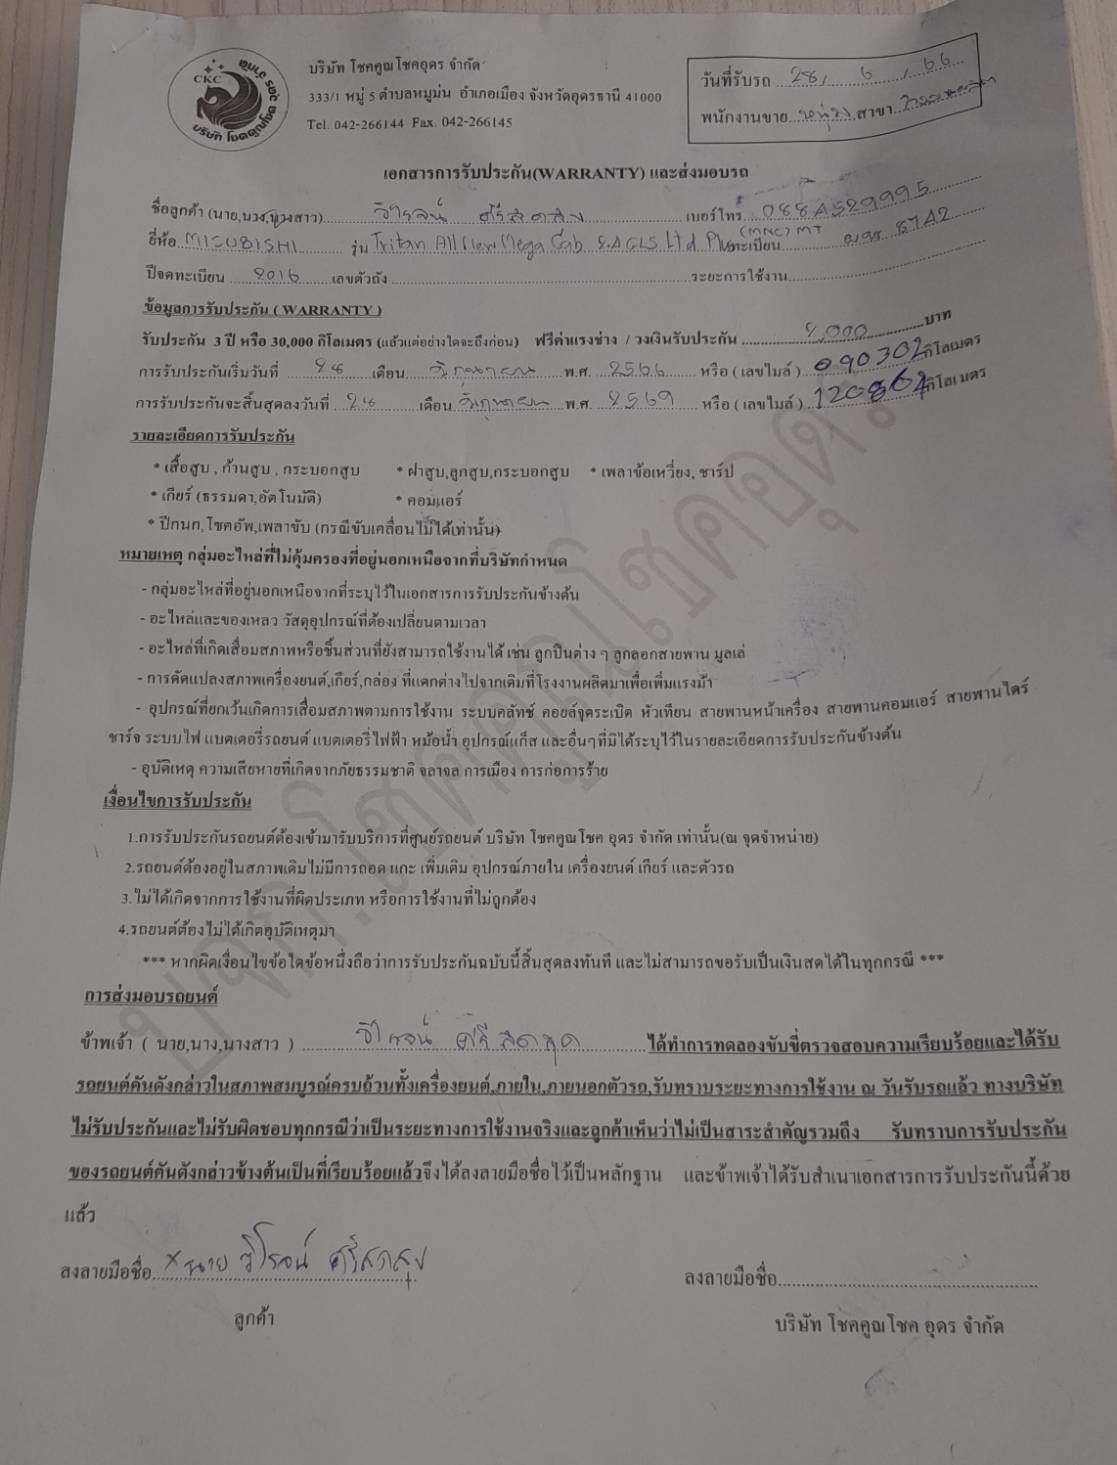 CKC
บริษัท โชคคูณโชค อุดร จำกัด
บริษัท โชคคูณโชคอุดร จำกัด
333/1 หมู่ 5 ตำบลหมูม่น อำเภอเมือง จังหวัดอุดรธานี 41000
Tel. 042-266144 Fax. 042-266145
วันที่รับรถ 28 / 6 / 66
พนักงานขาย สาขา
เอกสารการรับประกัน(WARRANTY) และส่งมอบรถ
ชื่อลูกค้า (นาย,นาง,นางสาว) วิโรจน์ เบอร์โทร 0884529995
ยี่ห้อ MISUBISHI รุ่น Tritan All New Mega Cab 2.4 GLS Ltd. Plus (MNC) MT ทะเบียน 8742
ปีจดทะเบียน 2016 เลขตัวถัง ระยะการใช้งาน
ข้อมูลการรับประกัน ( WARRANTY )
รับประกัน 3 ปี หรือ 30,000 กิโลเมตร (แล้วแต่อย่างใดจะถึงก่อน) ฟรีค่าแรงช่าง / วงเงินรับประกัน 2,000 บาท
การรับประกันเริ่มวันที่ 28 เดือน มิถุนายน พ.ศ. 2566 หรือ ( เลขไมล์ ) 090302 กิโลเมตร
การรับประกันจะสิ้นสุดลงวันที่ 28 เดือน มิถุนายน พ.ศ. 2569 หรือ ( เลขไมล์ ) กิโลเมตร
รายละเอียดการรับประกัน
* เสื้อสูบ , ก้านสูบ , กระบอกสูบ * ฝาสูบ,ลูกสูบ,กระบอกสูบ * เพลาข้อเหวี่ยง, ชาร์ป
* เกียร์ (ธรรมดา,อัตโนมัติ) * คอมแอร์
* ปีกนก,โชคอัพ,เพลาขับ (กรณีขับเคลื่อนไม่ได้เท่านั้น)
หมายเหตุ กลุ่มอะไหล่ที่ไม่คุ้มครองที่อยู่นอกเหนือจากที่บริษัทกำหนด
- กลุ่มอะไหล่ที่อยู่นอกเหนือจากที่ระบุไว้ในเอกสารการรับประกันข้างต้น
- อะไหล่และของเหลว วัสดุอุปกรณ์ที่ต้องเปลี่ยนตามเวลา
- อะไหล่ที่เกิดเสื่อมสภาพหรือชิ้นส่วนที่ยังสามารถใช้งานได้ เช่น ลูกปืนต่าง ๆ ลูกลอกสายพาน มูลเล่
- การดัดแปลงสภาพเครื่องยนต์,เกียร์,กล่อง ที่แตกต่างไปจากเดิมที่โรงงานผลิตมาเพื่อเพิ่มแรงม้า
- อุปกรณ์ที่ยกเว้นเกิดการเสื่อมสภาพตามการใช้งาน ระบบคลัทช์ คอยล์จุดระเบิด หัวเทียน สายพานหน้าเครื่อง สายพานคอมแอร์ สายพานไดร์
ชาร์จ ระบบไฟ แบตเตอรี่รถยนต์ แบตเตอรี่ไฟฟ้า หม้อน้ำ อุปกรณ์แก็ส และอื่นๆที่มิได้ระบุไว้ในรายละเอียดการรับประกันข้างต้น
- อุบัติเหตุ ความเสียหายที่เกิดจากภัยธรรมชาติ จลาจล การเมือง การก่อการร้าย
เงื่อนไขการรับประกัน
1.การรับประกันรถยนต์ต้องเข้ามารับบริการที่ศูนย์รถยนต์ บริษัท โชคคูณโชค อุดร จำกัด เท่านั้น(ณ จุดจำหน่าย)
2.รถยนต์ต้องอยู่ในสภาพเดิมไม่มีการถอด แกะ เพิ่มเติม อุปกรณ์ภายใน เครื่องยนต์ เกียร์ และตัวรถ
3.ไม่ได้เกิดจากการใช้งานที่ผิดประเภท หรือการใช้งานที่ไม่ถูกต้อง
4.รถยนต์ต้องไม่ได้เกิดอุบัติเหตุมา
*** หากผิดเงื่อนไขข้อใดข้อหนึ่งถือว่าการรับประกันฉบับนี้สิ้นสุดลงทันที และไม่สามารถขอรับเป็นเงินสดได้ในทุกกรณี ***
การส่งมอบรถยนต์
ข้าพเจ้า ( นาย,นาง,นางสาว ) วิโรจน์ ได้ทำการทดลองขับขี่ตรวจสอบความเรียบร้อยและได้รับ
รถยนต์คันดังกล่าวในสภาพสมบูรณ์ครบถ้วนทั้งเครื่องยนต์,ภายใน,ภายนอกตัวรถ,รับทราบระยะทางการใช้งาน ณ วันรับรถแล้ว ทางบริษัท
ไม่รับประกันและไม่รับผิดชอบทุกกรณีว่าเป็นระยะทางการใช้งานจริงและลูกค้าเห็นว่าไม่เป็นสาระสำคัญรวมถึง รับทราบการรับประกัน
ของรถยนต์คันดังกล่าวข้างต้นเป็นที่เรียบร้อยแล้วจึงได้ลงลายมือชื่อไว้เป็นหลักฐาน และข้าพเจ้าได้รับสำเนาเอกสารการรับประกันนี้ด้วย
แล้ว
ลงลายมือชื่อ x นาย วิโรจน์ ลงลายมือชื่อ
ลูกค้า
บริษัท โชคคูณโชค อุดร จำกัด
บจก.โชคคูณโชคอุดร